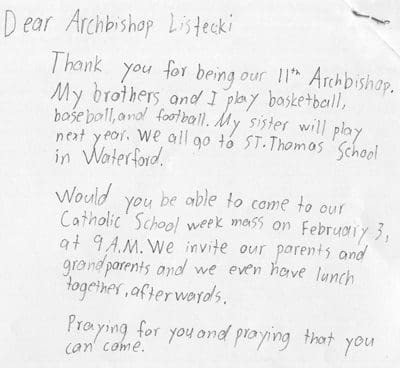 Dear Archbishop Listecki
Thank you for being our 11th Archbishop.
My brothers and I play basketball,
baseball, and football. My sister will play
next year. We all go to ST. Thomas School
in Waterford.
Would you be able to come to our
Catholic School week mass on February 3,
at 9 A.M. We invite our parents and
grandparents and we even have lunch
together, afterwards.
Praying for you and praying that you
can come.